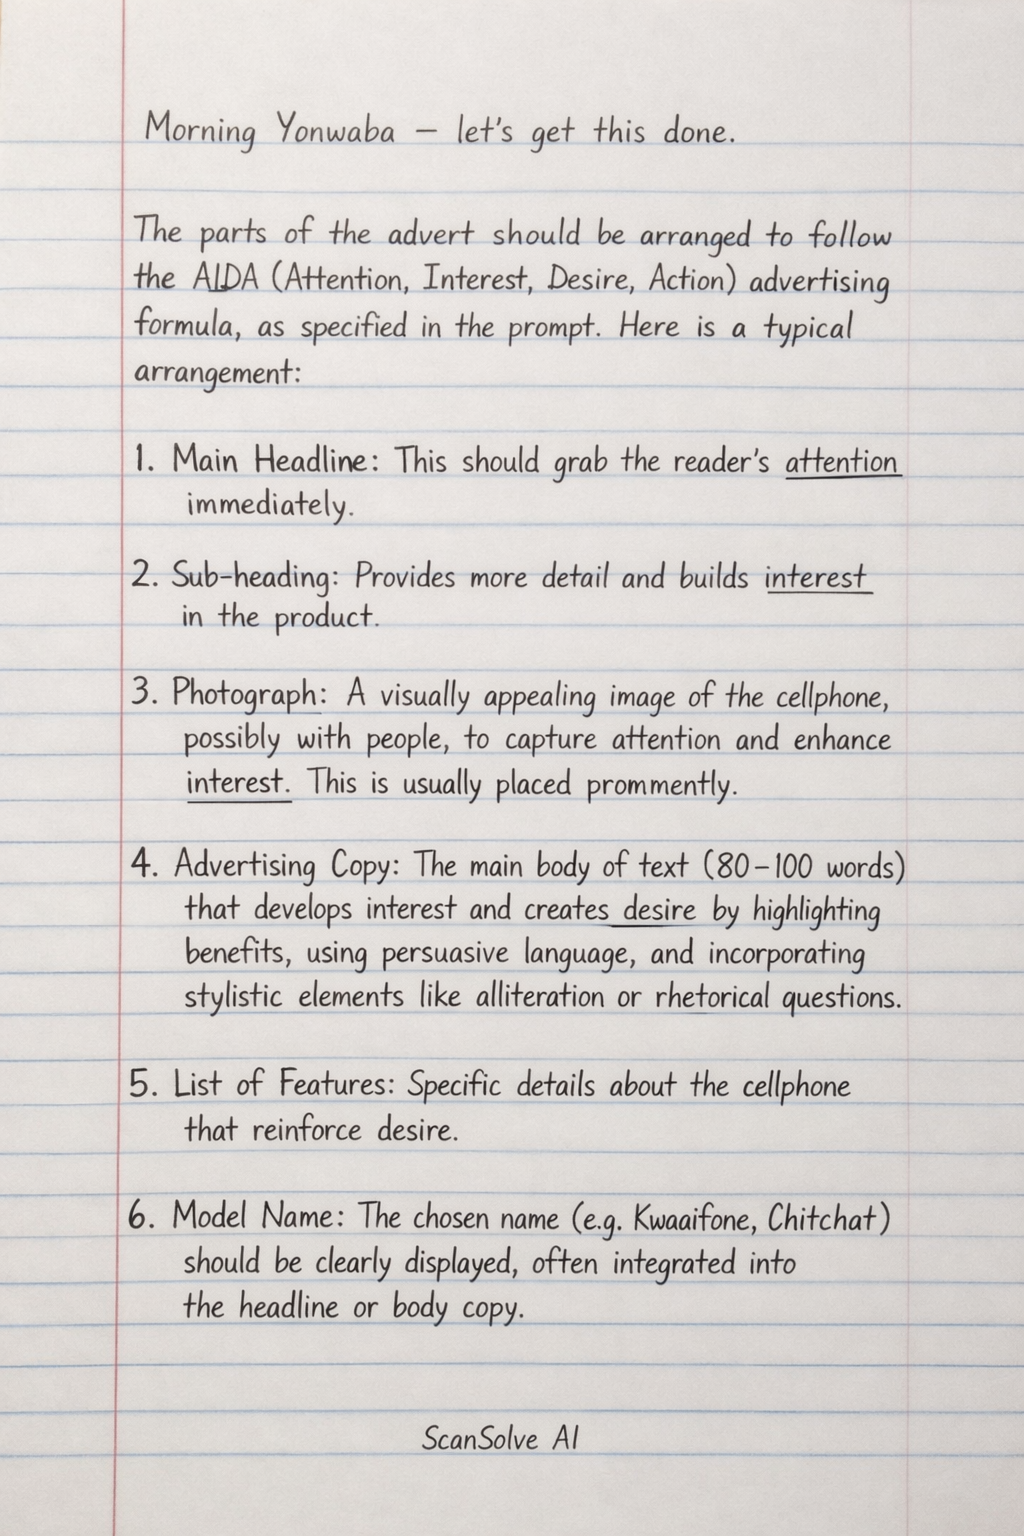 Morning Yonwaba – let's get this done.
The parts of the advert should be arranged to follow
the AIDA (Attention, Interest, Desire, Action) advertising
formula, as specified in the prompt. Here is a typical
arrangement:
1. Main Headline: This should grab the reader's attention
immediately.
2. Sub-heading: Provides more detail and builds interest
in the product.
3. Photograph: A visually appealing image of the cellphone,
possibly with people, to capture attention and enhance
interest. This is usually placed prommently.
4. Advertising Copy: The main body of text (80–100 words)
that develops interest and creates desire by highlighting
benefits, using persuasive language, and incorporating
stylistic elements like alliteration or rhetorical questions.
5. List of Features: Specific details about the cellphone
that reinforce desire.
6. Model Name: The chosen name (e.g. Kwaaifone, Chitchat)
should be clearly displayed, often integrated into
the headline or body copy.
ScanSolve AI